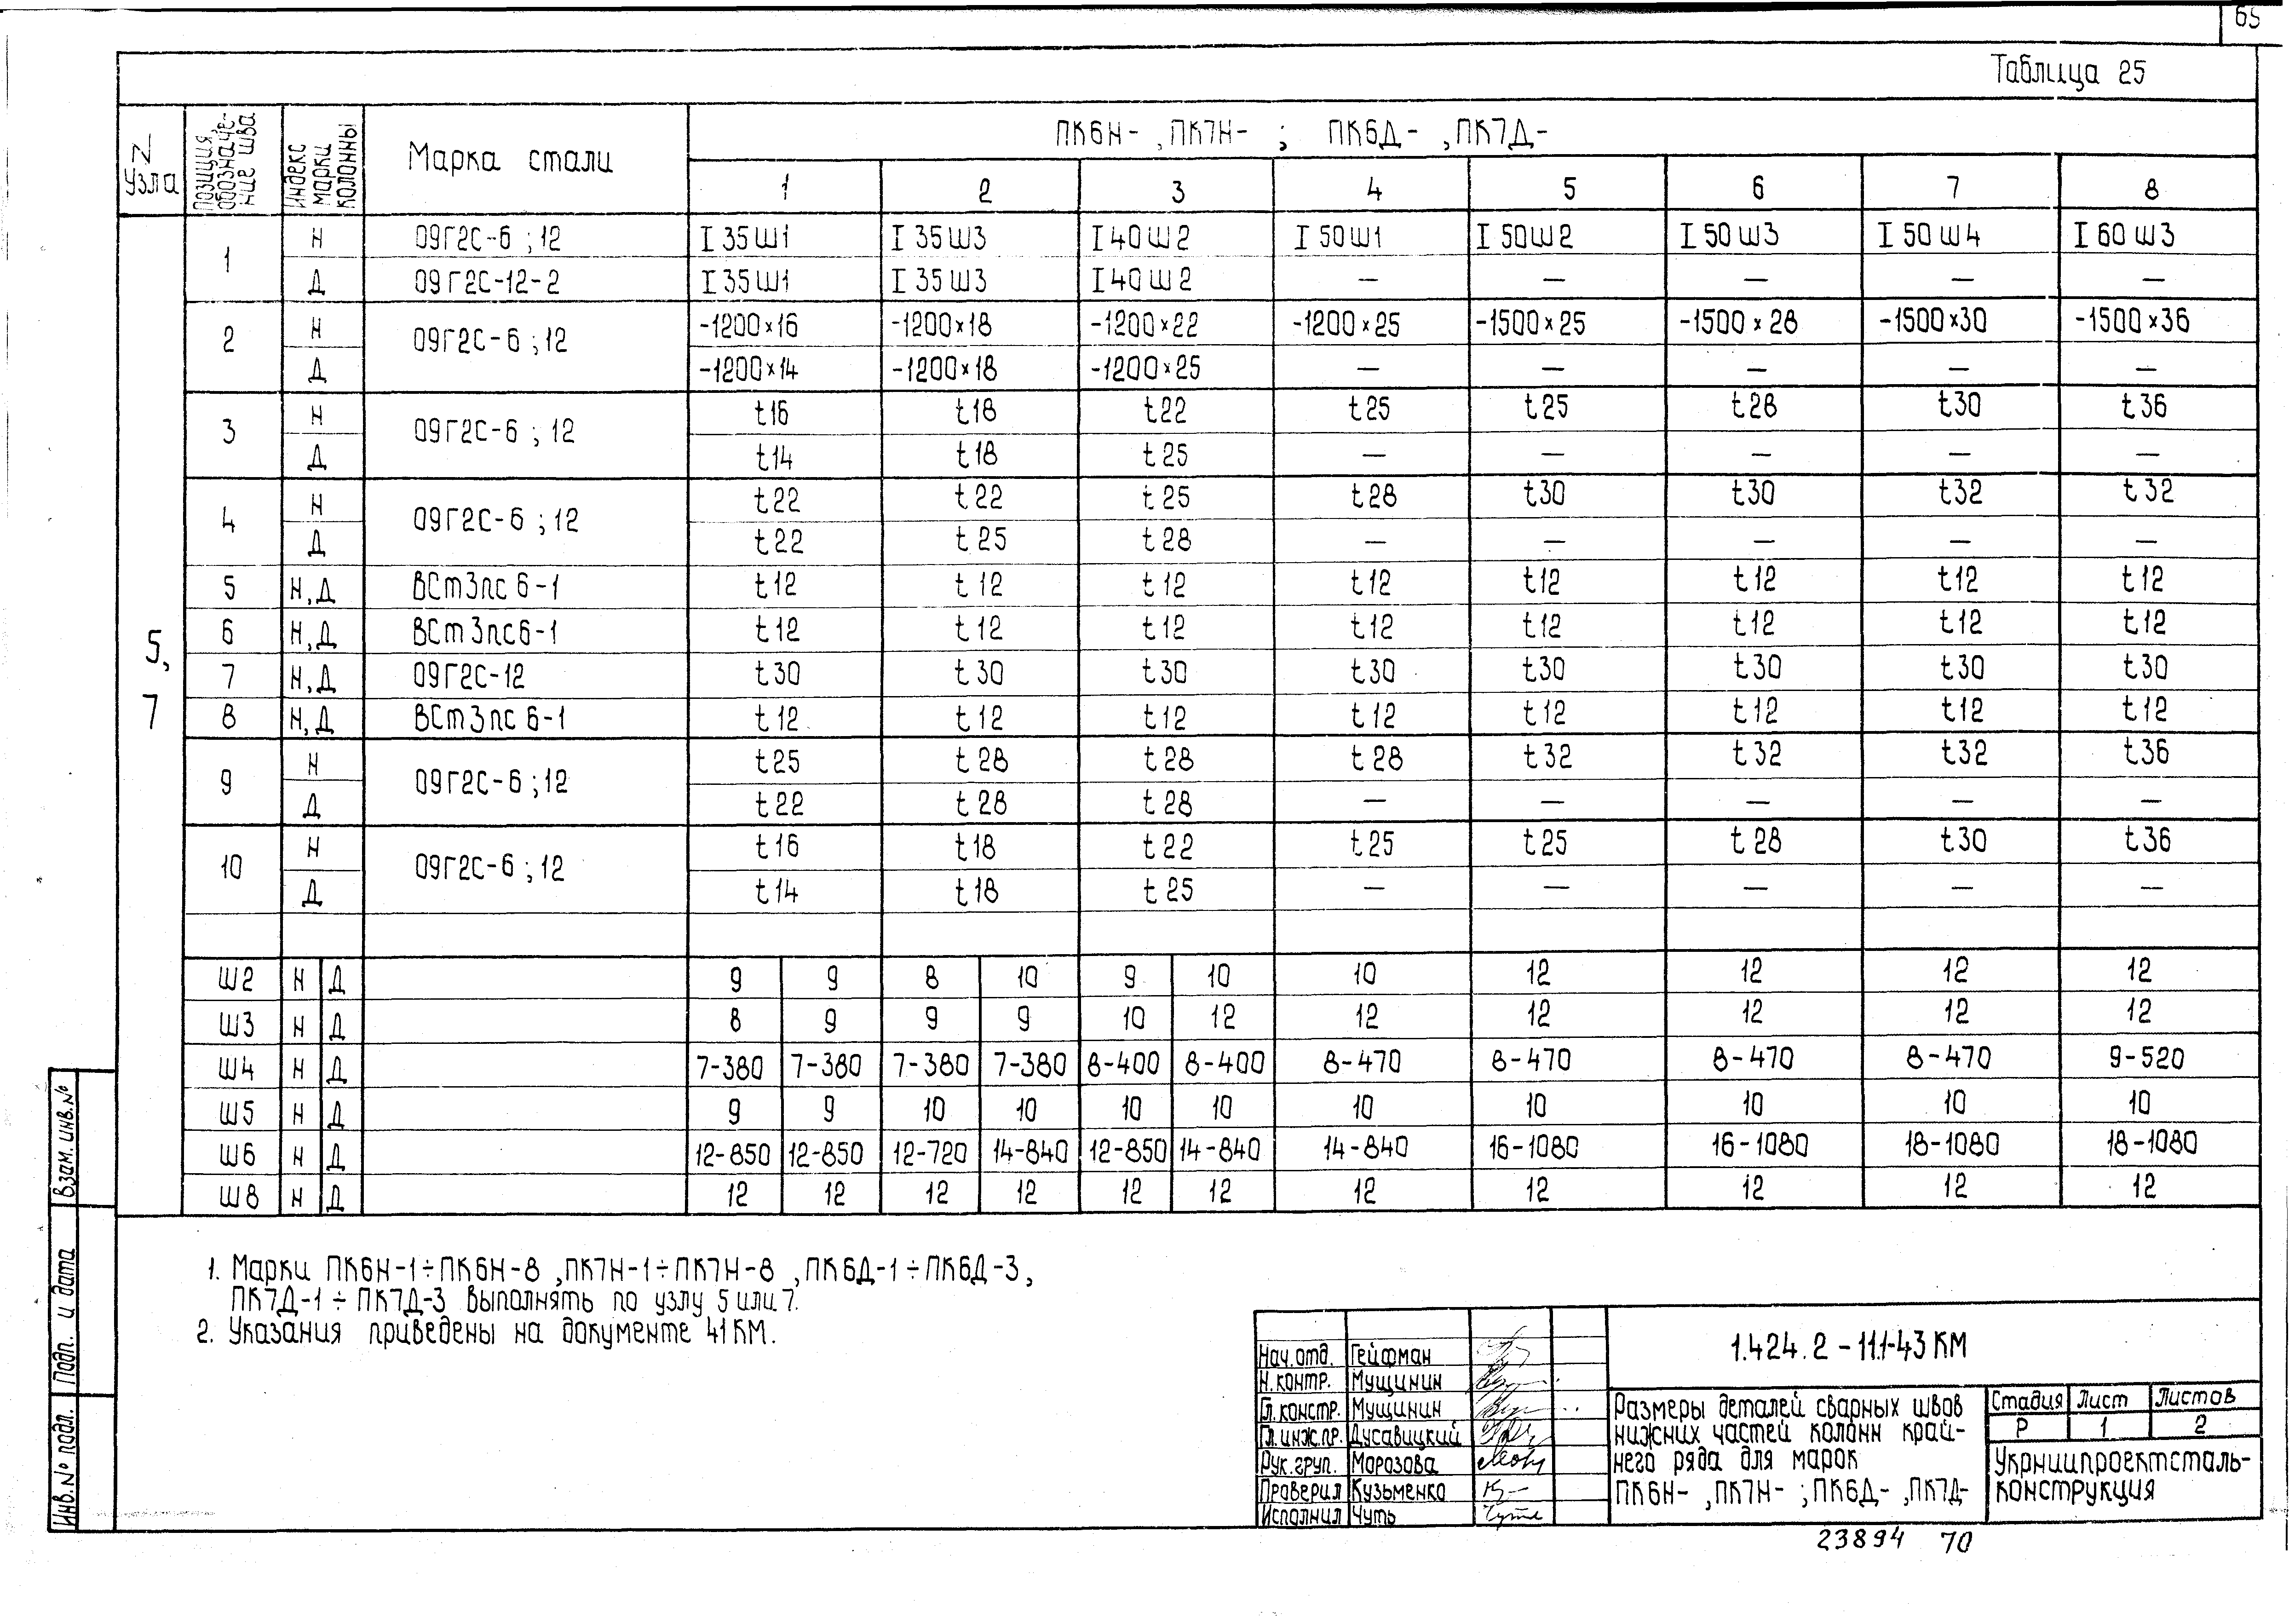 65
Таблица 25
N узла | Позиция, обозначе-ние шва | Индекс марки колонны | Марка стали | ПК6Н- , ПК7Н- ; ПК6Д- , ПК7Д-
1 | 2 | 3 | 4 | 5 | 6 | 7 | 8
5, 7
1 | Н | 09Г2С-6 ; 12 | I 35Ш1 | I 35Ш3 | I 40Ш2 | I 50Ш1 | I 50Ш2 | I 50Ш3 | I 50Ш4 | I 60Ш3
Д | 09Г2С-12-2 | I 35Ш1 | I 35Ш3 | I 40Ш2 | — | — | — | — | —
2 | Н | 09Г2С-6 ; 12 | -1200×16 | -1200×18 | -1200×22 | -1200×25 | -1500×25 | -1500×28 | -1500×30 | -1500×36
Д | -1200×14 | -1200×18 | -1200×25 | — | — | — | — | —
3 | Н | 09Г2С-6 ; 12 | t16 | t18 | t22 | t25 | t25 | t28 | t30 | t36
Д | t14 | t18 | t25 | — | — | — | — | —
4 | Н | 09Г2С-6 ; 12 | t22 | t22 | t25 | t28 | t30 | t30 | t32 | t32
Д | t22 | t25 | t28 | — | — | — | — | —
5 | Н,Д | ВСт3пс6-1 | t12 | t12 | t12 | t12 | t12 | t12 | t12 | t12
6 | Н,Д | ВСт3пс6-1 | t12 | t12 | t12 | t12 | t12 | t12 | t12 | t12
7 | Н,Д | 09Г2С-12 | t30 | t30 | t30 | t30 | t30 | t30 | t30 | t30
8 | Н,Д | ВСт3пс6-1 | t12 | t12 | t12 | t12 | t12 | t12 | t12 | t12
9 | Н | 09Г2С-6 ; 12 | t25 | t28 | t28 | t28 | t32 | t32 | t32 | t36
Д | t22 | t28 | t28 | — | — | — | — | —
10 | Н | 09Г2С-6 ; 12 | t16 | t18 | t22 | t25 | t25 | t28 | t30 | t36
Д | t14 | t18 | t25 | — | — | — | — | —
Ш2 | Н | Д | 9 | 9 | 8 | 10 | 9 | 10 | 10 | 12 | 12 | 12 | 12
Ш3 | Н | Д | 8 | 9 | 9 | 9 | 10 | 12 | 12 | 12 | 12 | 12 | 12
Ш4 | Н | Д | 7-380 | 7-380 | 7-380 | 7-380 | 8-400 | 8-400 | 8-470 | 8-470 | 8-470 | 8-470 | 9-520
Ш5 | Н | Д | 9 | 9 | 10 | 10 | 10 | 10 | 10 | 10 | 10 | 10 | 10
Ш6 | Н | Д | 12-850 | 12-850 | 12-720 | 14-840 | 12-850 | 14-840 | 14-840 | 16-1080 | 16-1080 | 18-1080 | 18-1080
Ш8 | Н | Д | 12 | 12 | 12 | 12 | 12 | 12 | 12 | 12 | 12 | 12 | 12
1. Марки ПК6Н-1÷ПК6Н-8 , ПК7Н-1÷ПК7Н-8 , ПК6Д-1÷ПК6Д-3,
ПК7Д-1÷ПК7Д-3 выполнять по узлу 5 или 7.
2. Указания приведены на документе 41КМ.
Взам. инв. №
Подп. и дата
Инв. № подл.
Нач. отд. Гейфман
Н. контр. Мущинин
Гл. констр. Мущинин
Гл. инж. пр. Дусавицкий
Рук. груп. Морозова
Проверил Кузьменко
Исполнил Чуть
1.424.2-11.1-43 КМ
Размеры деталей сварных швов
нижних частей колонн край-
него ряда для марок
ПК6Н- , ПК7Н- ; ПК6Д- , ПК7Д-
Стадия | Лист | Листов
Р | 1 | 2
Укрниипроектсталь-
конструкция
23894 70